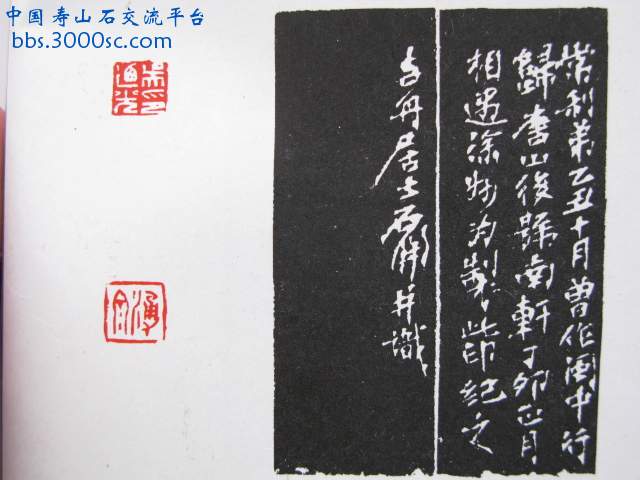 中国寿山石交流平台
bbs.3000sc.com
利弟乙丑十月曾作閩中行
歸唐山後歸南軒丁卯正月
相遇製此印紀之
居士石并識